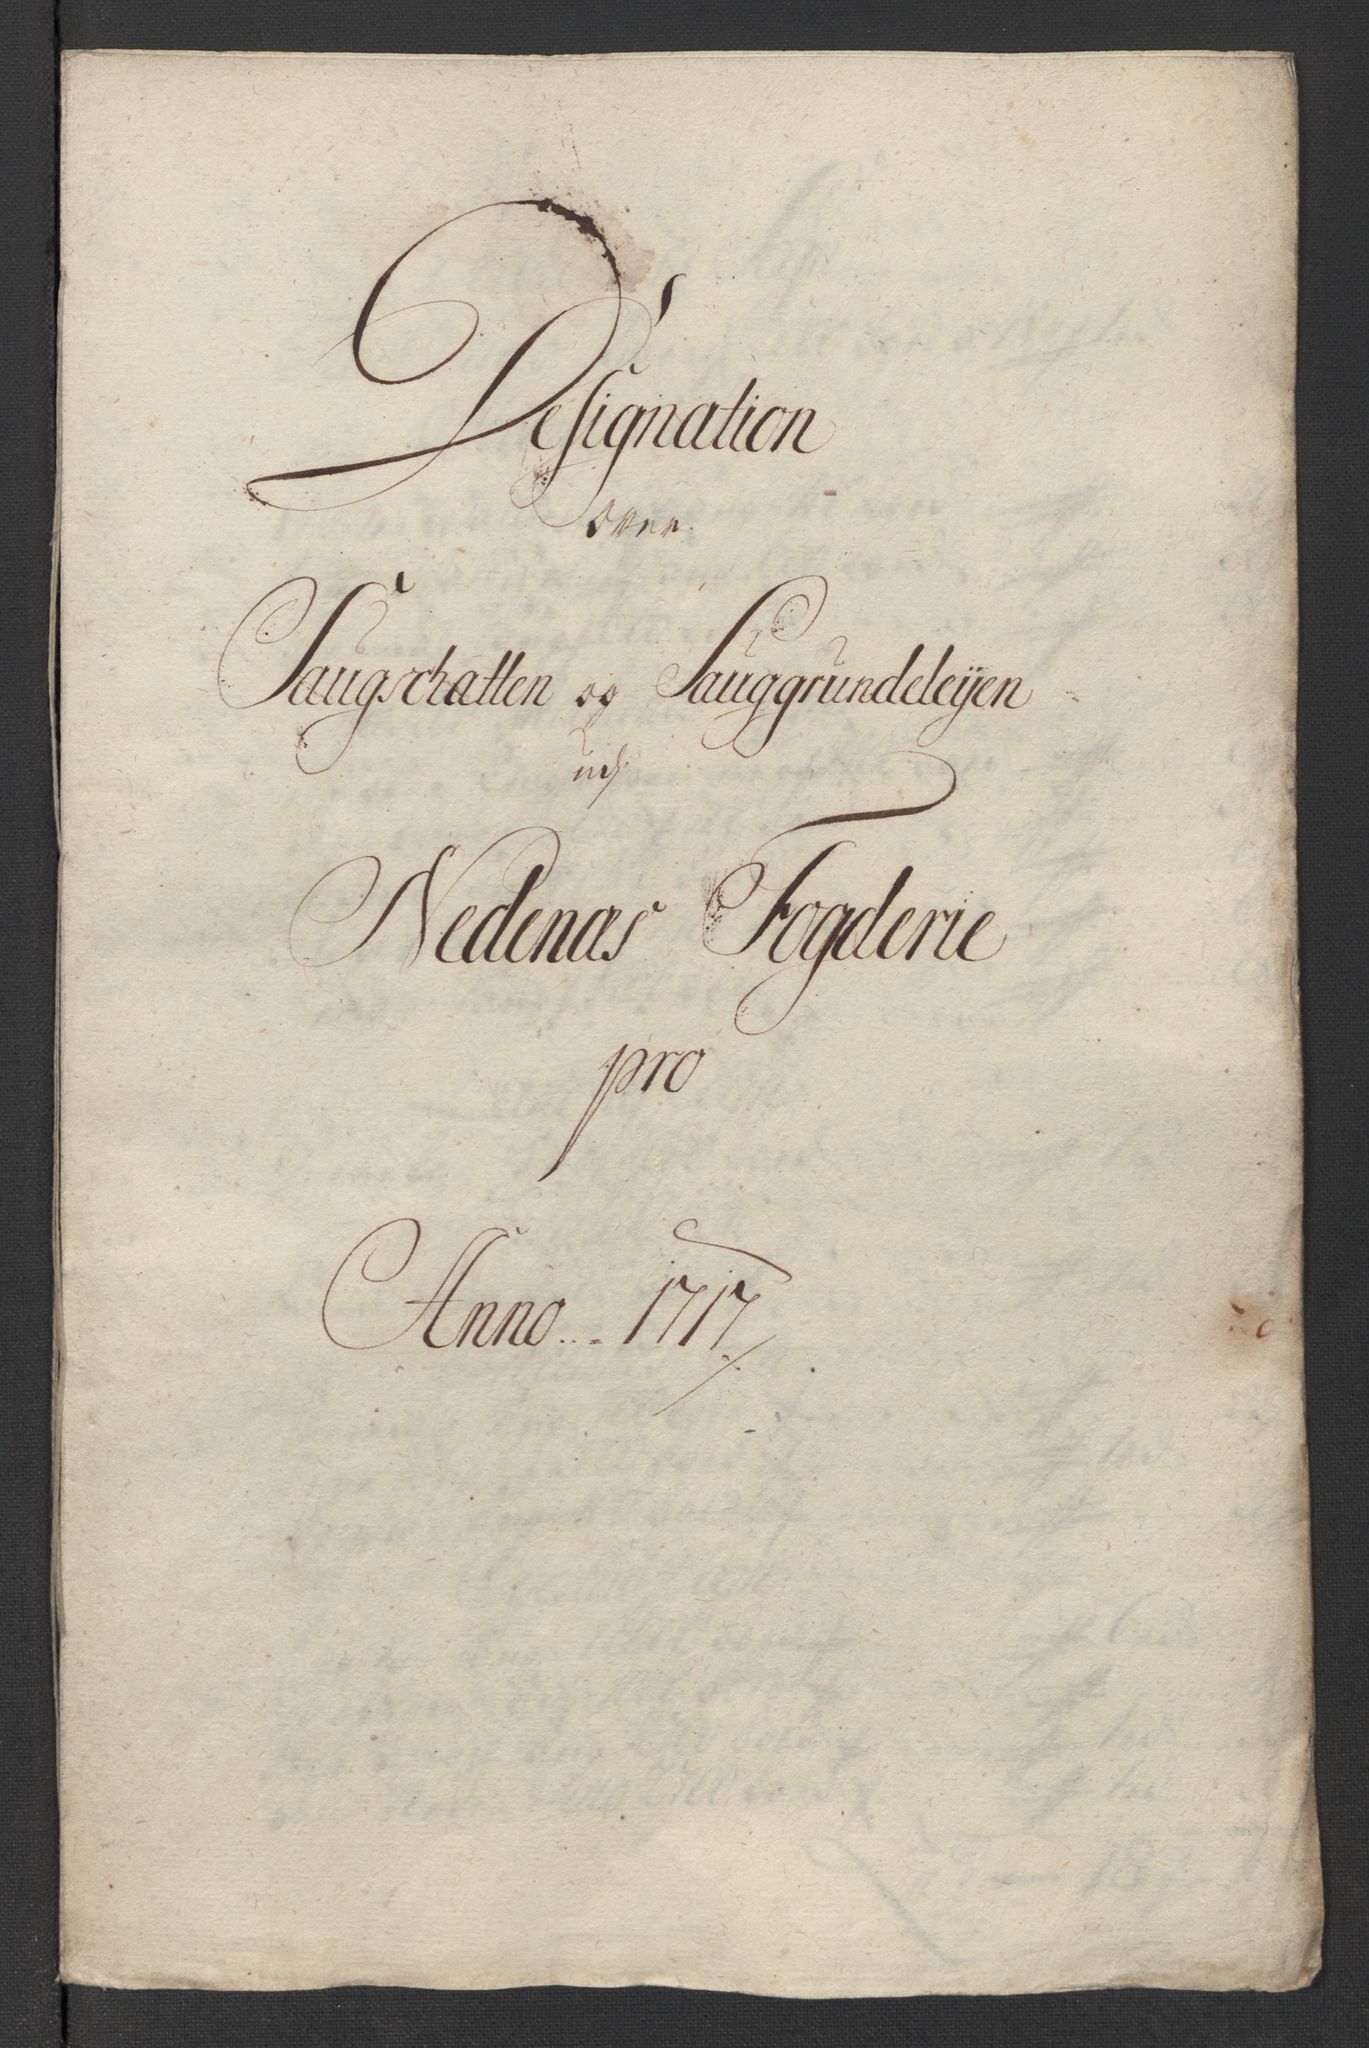 Designation
over
Saugschatten og Sauggrundeleÿen
udj
Nedenæs Fogderie
pro
Anno 1717